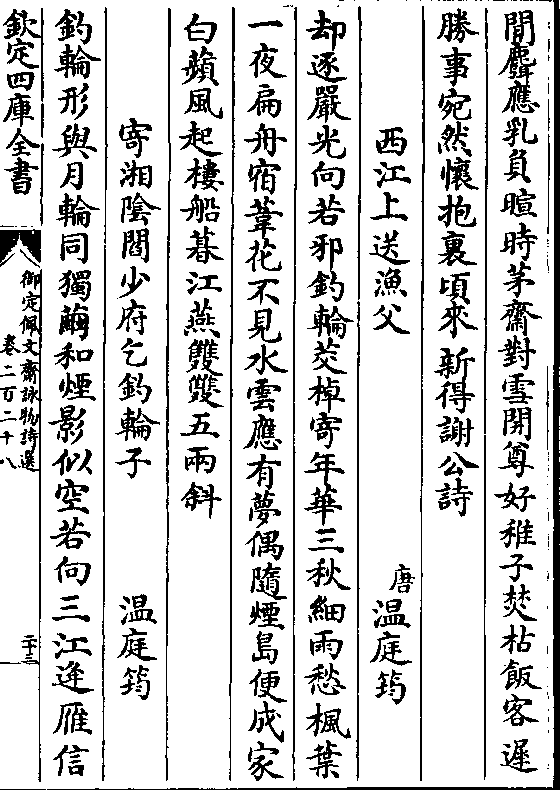 閒聾應乳負暄時茅齋對雪開尊好稚子焚枯飯客遲
勝事宛然懷抱裏頃來新得謝公詩
西江上送漁父　唐温庭筠
却逐嚴光向若邪釣輪茭棹寄年華三秋細雨愁楓葉
一夜扁舟宿葦花不見水雲應有夢偶隨煙島便成家
白蘋風起樓船暮江燕雙雙五兩斜
寄湘隂閻少府乞釣輪子　温庭筠
釣輪形與月輪同獨繭和煙影似空若向三江逄雁信
欽定四庫全書
御定佩文齋詠物詩選
卷二百二十八
二十三